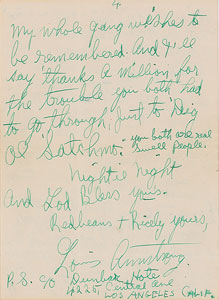 4.
My whole gang wishes to
be remembered. And I'll
say 'thanks a Million, for
the trouble you both had
to go 'through, just to 'Dig
Ol 'Satchmo. you both are real
swell people.
Nightie Night
And God Bless You.
Redbeans + Ricely yours,
Louis Armstrong.
P.S. 90 Dunbar Hotel
4225, Central ave
LOS ANGELES CALIF.